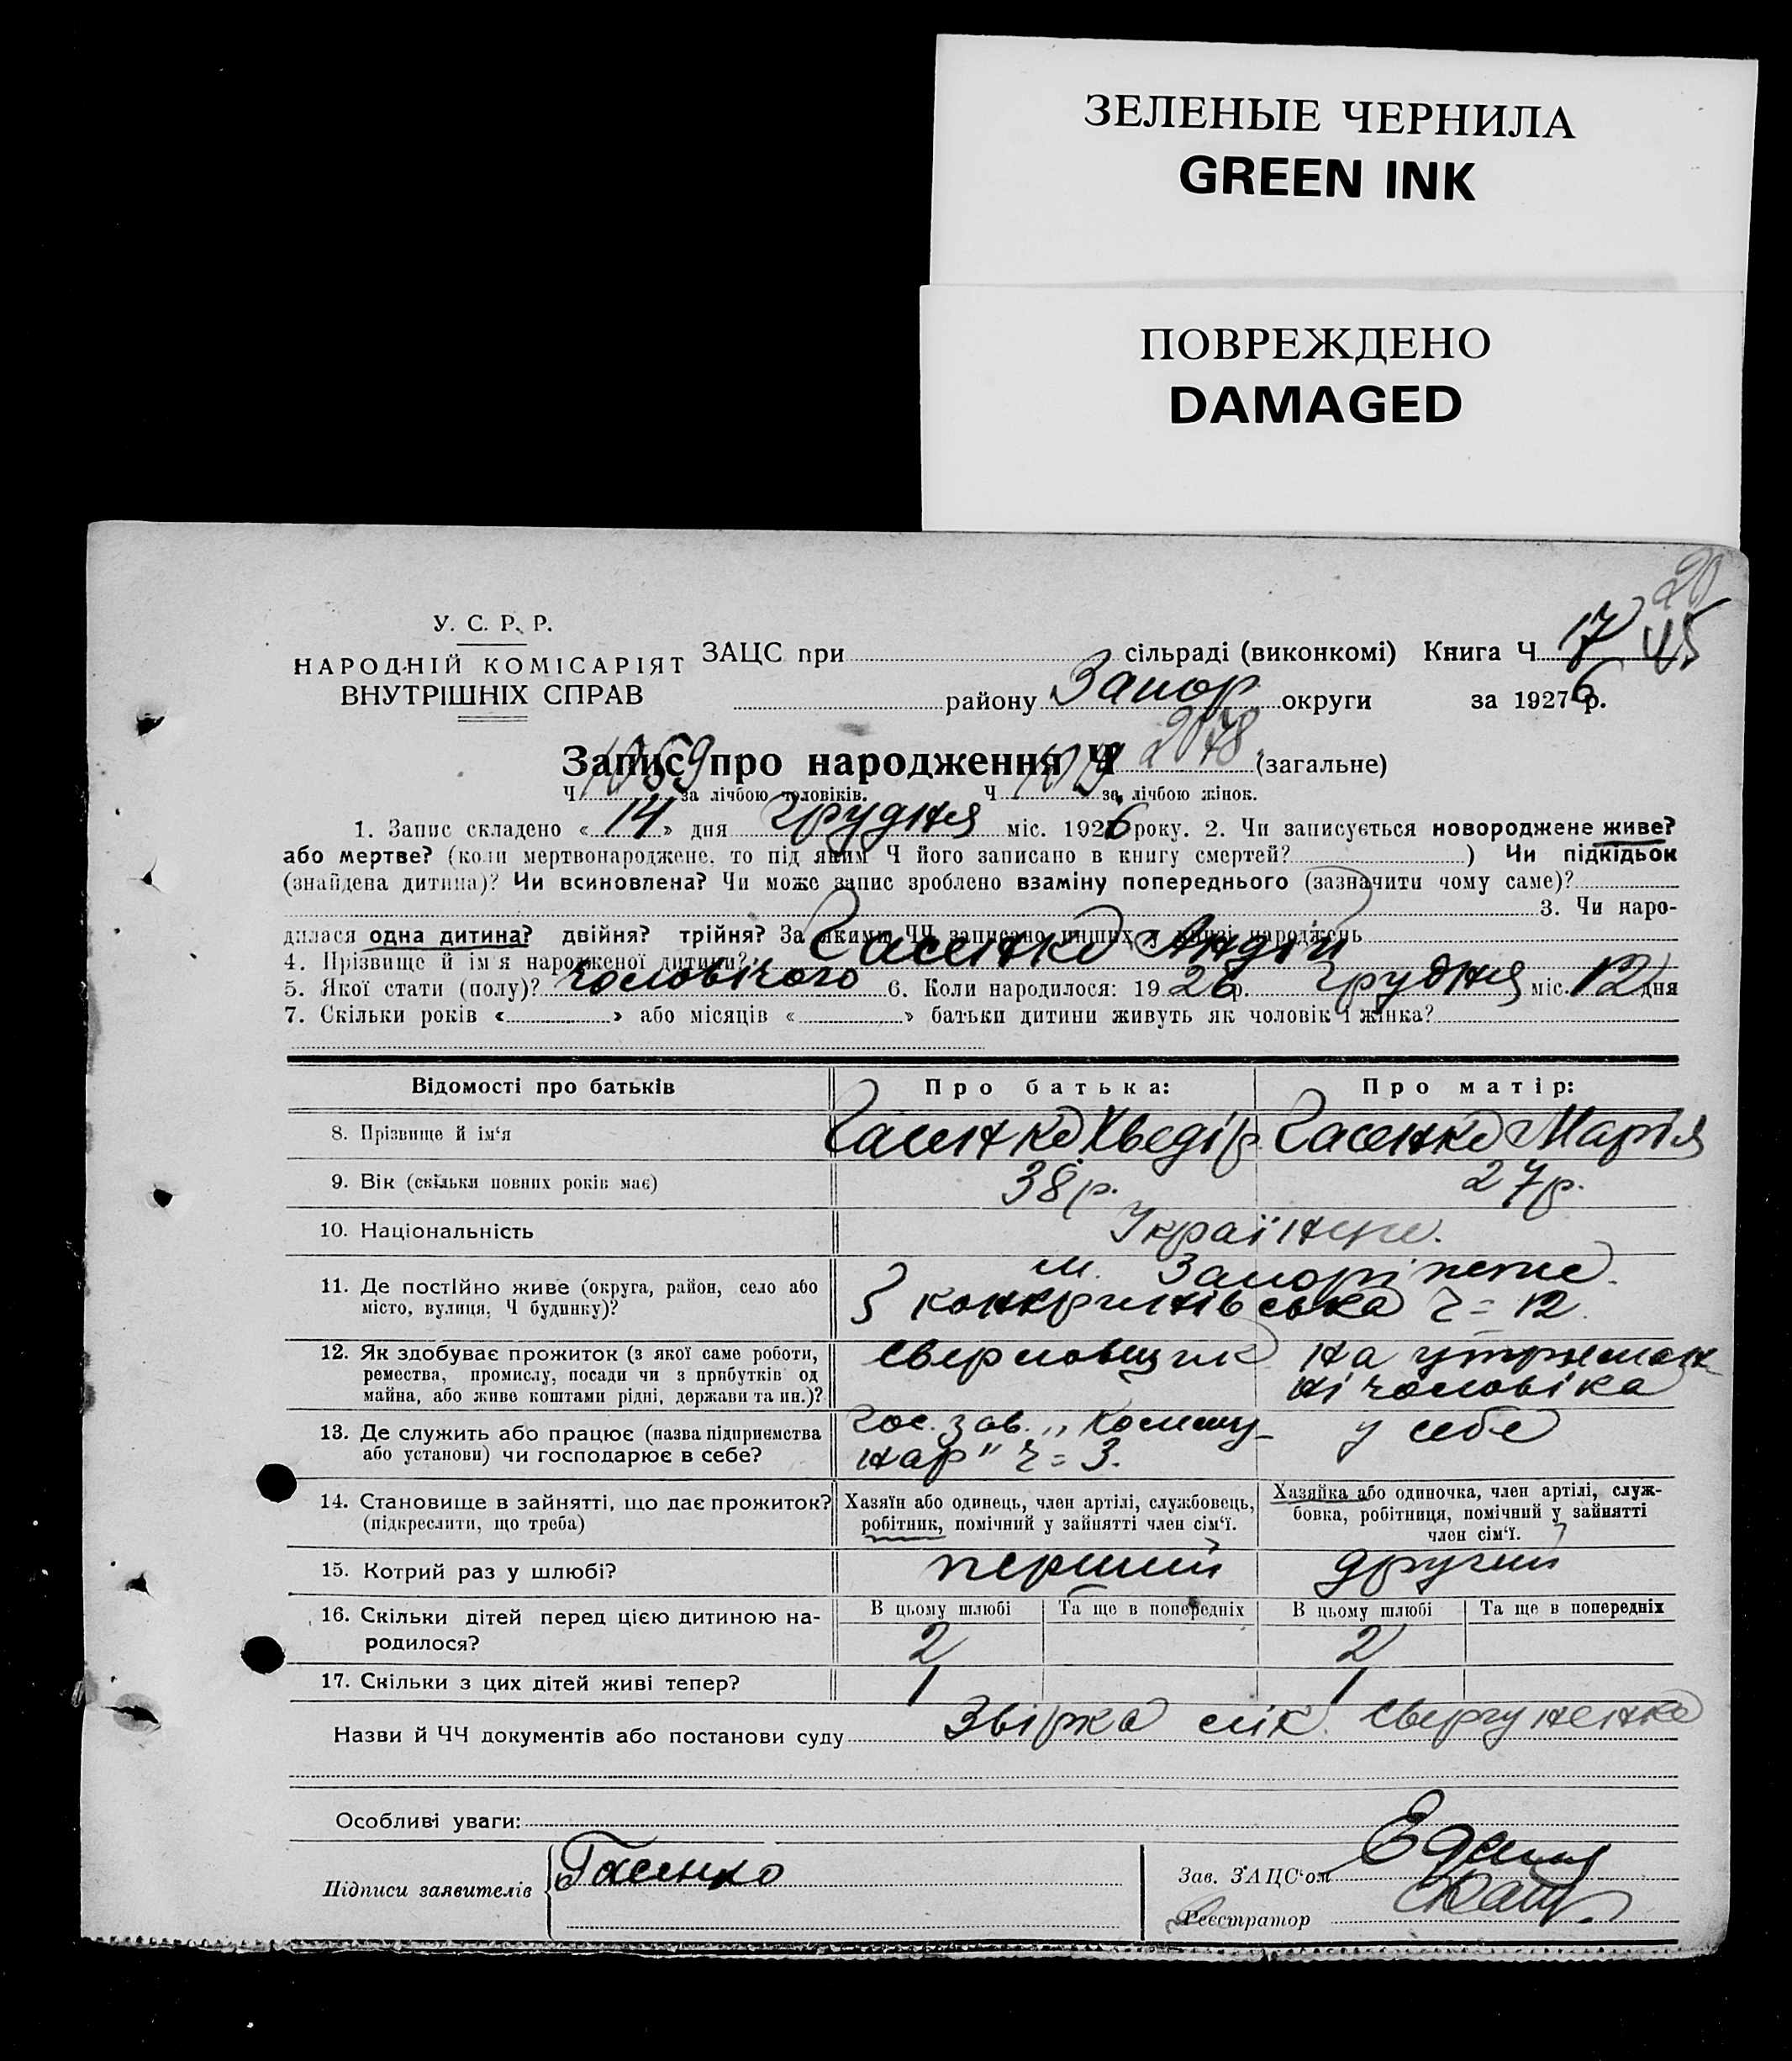 ЗЕЛЕНЫЕ ЧЕРНИЛА
GREEN INK
ПОВРЕЖДЕНО
DAMAGED
20
45
У. С. Р. Р.
НАРОДНІЙ КОМІСАРІЯТ
ВНУТРІШНІХ СПРАВ
ЗАЦС при сільраді (виконкомі) Книга Ч 17
району Запор округи за 1926 р.
Запис про народження Ч 2078 (загальне)
Ч 1059 за лічбою чоловіків. Ч за лічбою жінок.
1. Запис складено « 14 » дня грудня міс. 1926 року. 2. Чи записується новороджене живе?
або мертве? (коли мертвонароджене, то під яким Ч його записано в книгу смертей? ) Чи підкідьок
(знайдена дитина)? Чи всиновлена? Чи може запис зроблено взаміну попереднього (зазначити чому саме)?
3. Чи наро-
дилася одна дитина? двійня? трійня? За якими ЧЧ записано инших у книзі народжень
4. Прізвище й ім'я народженої дитини? Гасенко Андрій
5. Якої стати (полу)? чоловічого 6. Коли народилося: 1926 р. грудня міс. 12 дня
7. Скільки років « » або місяців « » батьки дитини живуть як чоловік і жінка?
Відомості про батьків Про батька: Про матір:
8. Прізвище й ім'я Гасенко Хведір Гасенко Марія
9. Вік (скільки повних років має) 38 р. 27 р.
10. Національність Українці.
11. Де постійно живе (округа, район, село або м. Запоріжже.
місто, вулиця, Ч будинку)? ч = 12
12. Як здобуває прожиток (з якої саме роботи, сверловщик на утриман
ремества, промислу, посади чи з прибутків од ні чоловіка
майна, або живе коштами рідні, держави та ин.)?
13. Де служить або працює (назва підприємства Гос. зав. „Комму- у себе
або установи) чи господарює в себе? нар" ч = 3.
14. Становище в зайнятті, що дає прожиток? Хазяїн або одинець, член артілі, службовець, Хазяйка або одиночка, член артілі, служ-
(підкреслити, що треба) робітник, помічний у зайнятті член сім'ї. бовка, робітниця, помічний у зайнятті
член сім'ї.
15. Котрий раз у шлюбі? перший другий
16. Скільки дітей перед цією дитиною на- В цьому шлюбі Та ще в попередніх В цьому шлюбі Та ще в попередніх
родилося? 2 2
17. Скільки з цих дітей живі тепер? 1 1
Назви й ЧЧ документів або постанови суду Звірка
Особливі уваги:
Підписи заявителів Гасенко
Зав. ЗАЦС'ом
Реєстратор